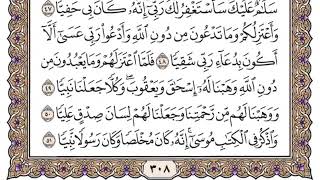 سَلَٰمٌ عَلَيْكَ سَأَسْتَغْفِرُ لَكَ رَبِّيٓ إِنَّهُۥ كَانَ بِي حَفِيًّا ٤٧
وَأَعْتَزِلُكُمْ وَمَا تَدْعُونَ مِن دُونِ ٱللَّهِ وَأَدْعُوا۟ رَبِّي عَسَىٰٓ أَلَّآ
أَكُونَ بِدُعَآءِ رَبِّي شَقِيًّا ٤٨ فَلَمَّا ٱعْتَزَلَهُمْ وَمَا يَعْبُدُونَ مِن
دُونِ ٱللَّهِ وَهَبْنَا لَهُۥٓ إِسْحَٰقَ وَيَعْقُوبَ ۖ وَكُلًّا جَعَلْنَا نَبِيًّا ٤٩
وَوَهَبْنَا لَهُم مِّن رَّحْمَتِنَا وَجَعَلْنَا لَهُمْ لِسَانَ صِدْقٍ عَلِيًّا ٥٠
وَٱذْكُرْ فِي ٱلْكِتَٰبِ مُوسَىٰٓ ۚ إِنَّهُۥ كَانَ مُخْلَصًا وَكَانَ رَسُولًا نَّبِيًّا ٥١
٣٠٨